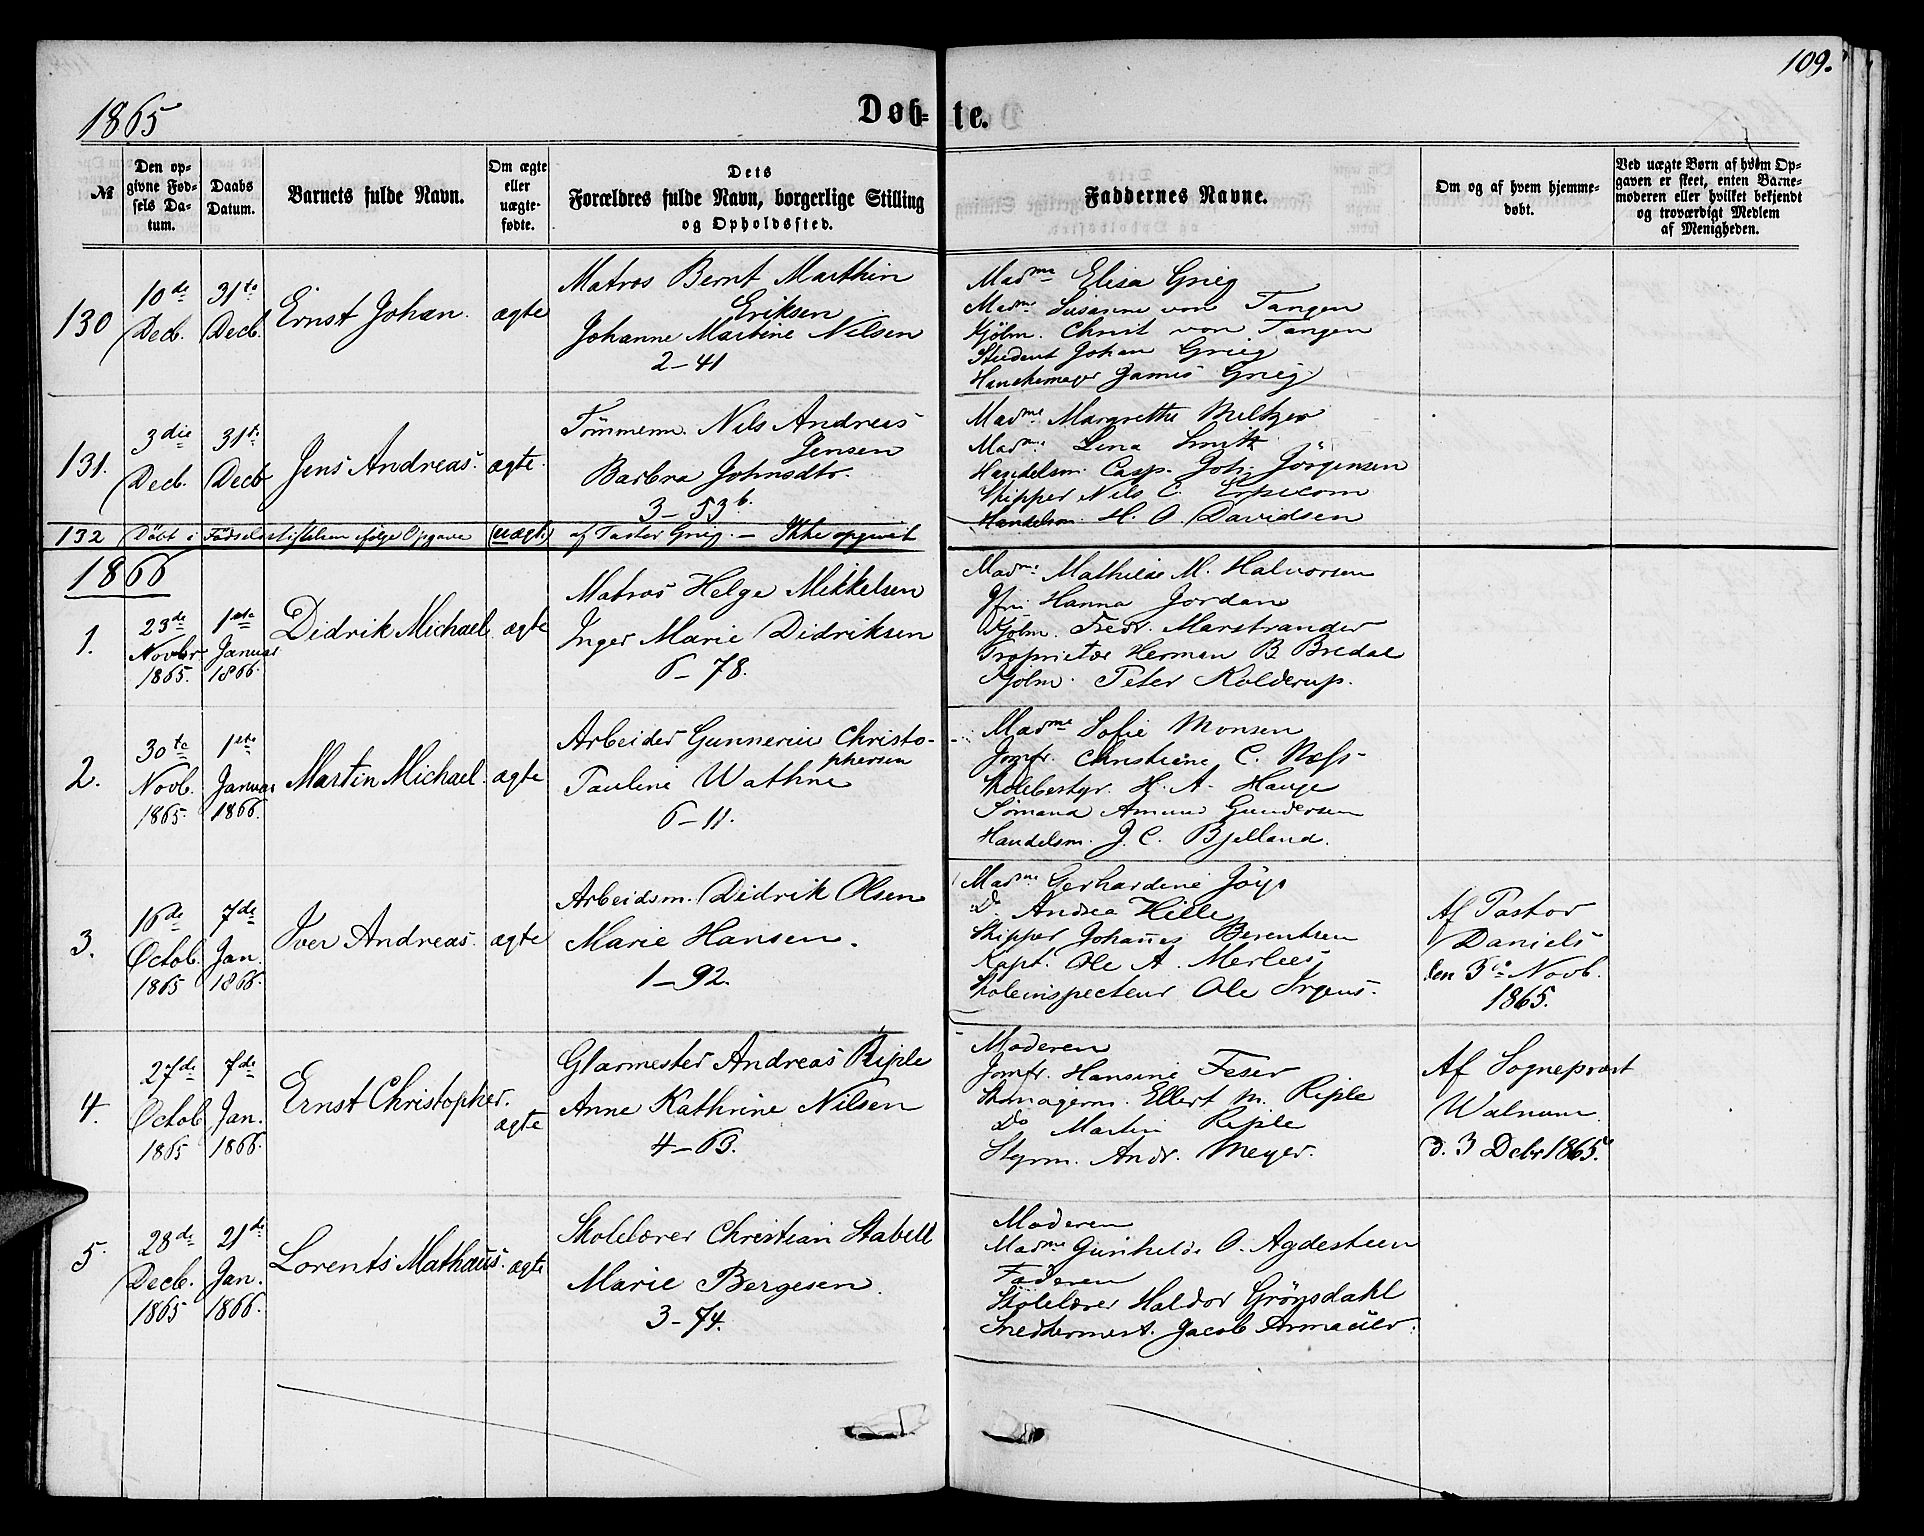 109.
1865
Døb- te.
№
Den opgivne Fødsels Datum.
Daabs Datum.
Barnets fulde Navn.
Om ægte eller uægte fødte.
Dets Forældres fulde Navn, borgerlige Stilling og Opholdssted.
Faddernes Navne.
Om og af hvem hjemmedøbt.
Ved uægte Børn af hvem Opgaven er skeet, enten Barnemoderen eller hvilket bekjendt og troværdigt Medlem af Menigheden.
130
10de Decb.
31te Decb.
Ernst Johan.
ægte
Matros Bernt Marthin
Eriksen
Johanne Martine Nilsen
2-41
Madme Elisa Grieg
Madme Susanne von Tangen
Kjøbm. Chrit von Tangen
Student Johan Grieg
James Grieg
131.
3die Decb.
31te Decb
Jens Andreas.
ægte.
Tömmerm. Nils Andreas
Jensen
Barbra Johnsdtr.
3-53b.
Madme Margrethe Meltzer
Madme Lina Smith
Handelsm. Casp. Joh. Jörgensen
Skipper Nils C.
Handelsm. H. O. Davidsen
132
Döbt i Födselsstiftelsen ifølge Opgave
(uægte)
af Pastor Grieg. - Ikke opgivet
1866
1.
23de Novbr 1865.
1ste Januar 1866.
Didrik Michael.
ægte
Matros Helge Mikkelsen
Inger Marie Didriksen
6-78.
Madme Mathilde M. Halvorsen
Jfr. Hanna Jordan
Kjøbm. Fredr. Marstrander
Proprietær Herman B. Bredal
Kjøbm. Peter Kolderup.
2.
30te Novb. 1865.
1ste Januar 1866.
Martin Michael.
ægte
Arbeider Gunnerius Christo-
phersen
Pauline Wathne
6-11.
Madme Sofie Monsen
Jomfr. Christiane C. Næss
Skolebestyr. H. A. Hauge
Sömand Amund Gundersen
Handelsm. J. C. Bjelland.
3.
16de Octob. 1865
7de Jan. 1866.
Iver Andreas.
ægte
Arbeidsm. Didrik Olsen
Marie Hansen.
1-92.
Madme Gerhardine Jöys
Do Andrea Hille
Skipper Johannes Berentsen
Kapt. Ole A. Merlees
Skoleinspecteur Ole Irgens.
Af Pastor
Daniels
den 3die Novb.
1865.
4.
27de Octob 1865
7de Jan. 1866.
Ernst Christopher.
ægte
Glarmester Andreas Riple
Anne Kathrine Nilsen
4-63.
Moderen
Jomfr. Hansine Feser
Skomagerm. Ellert M. Riple
Do Martin Riple
Styrm. Andr. Meyer.
Af Sognepræst
Walnum
d. 3 Decbr 1865.
5.
28de Decb. 1865
21de Jan. 1866.
Lorents Mathæus.
ægte
Skolelærer Christian Stabell
Marie Bergesen.
3-74.
Moderen
Madme Gunhilde O. Agdesteen
Faderen
Skolelærer Haldor Gröysdahl
Snedkermest. Jacob Armauer.